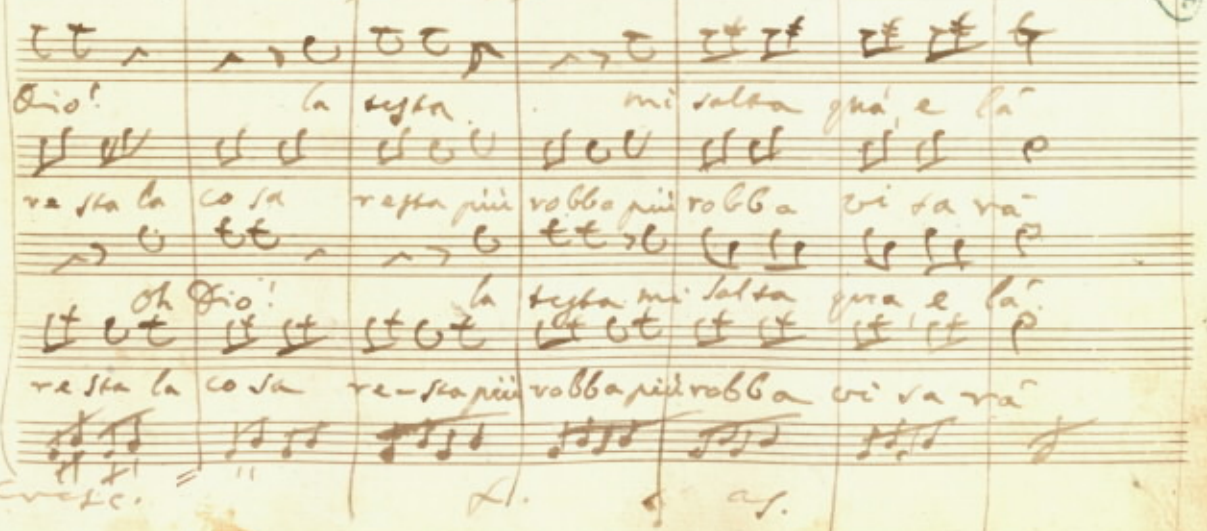 Dio! la testa mi salta quà, e là
resta la cosa resta più robba più robba vi sa rà
oh Dio! la testa mi salta qua e là.
resta la cosa re-sta più robba più robba vi sa rà
cresc. as.